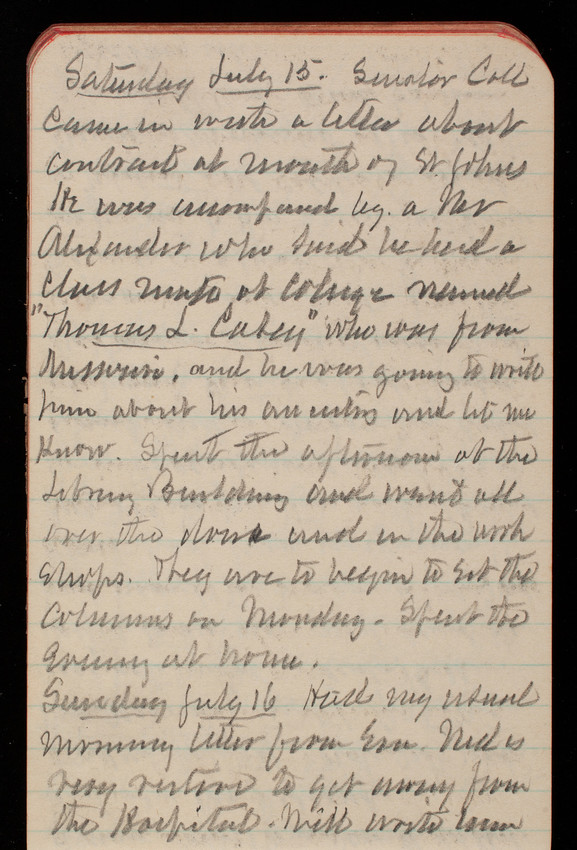 Saturday July 15. Senator Call
came in with a letter about
contract at mouth of St. Johns
He was accompanied by a Mr
Alexander who said he had a
class mate at College named
"Thomas L. Casey" who was from
Missouri, and he was going to write
him about his ancestry and let me
know. Spent the afternoon at the
Library Building and went all
over the dome and in the work
shops. They are to begin to set the
Columns on Monday. Spent the
Evening at home.
Sunday July 16 Had my usual
morning letter from Em. Ned is
very restive to get away from
the Hospital. Will write him